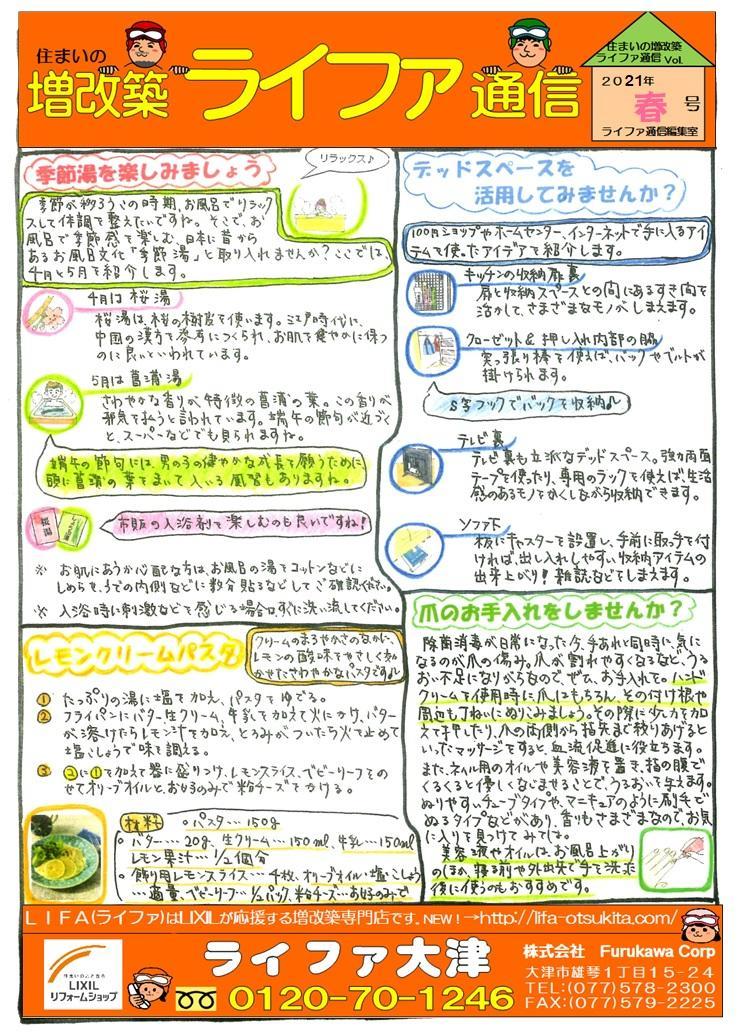 住まいの
増改築 ライファ 通信
住まいの増改築
ライファ通信 Vol.
2021年
春 号
ライファ通信編集室
季節湯を楽しみましょう
リラックス♪
季節が移ろうこの時期、お風呂でリラック
スして体調を整えたいですね。そこで、お
風呂で季節感を楽しむ、日本に昔から
あるお風呂文化「季節湯」と取り入れませんか？ここでは、
4月と5月を紹介します。
4月は桜湯
桜湯は、桜の樹皮を使います。江戸時代に、
中国の漢方を参考につくられ、お肌を健やかに保つ
のに良いといわれています。
5月は菖蒲湯
さわやかな香りが特徴の菖蒲の葉。この香りが
邪気を払うと言われています。端午の節句が近づく
と、スーパーなどでも見られますね。
端午の節句には、男の子の健やかな成長を願うために、
頭に菖蒲の葉をまいて入いる風習もありますね。
桜湯
市販の入浴剤を楽しむのも良いですね！
※ お肌にあうか心配な方は、お風呂の湯をコットンなどに
しめらせ、うでの内側などに数分貼るなどしてご確認ください。
※ 入浴時に刺激などを感じる場合は、すぐに洗い流してください。
デッドスペースを
活用してみませんか？
100円ショップやホームセンター、インターネットで手に入るアイ
テムを使ったアイデアを紹介します。
キッチンの収納扉裏
扉と収納スペースとの間にあるすき間を
活かして、さまざまなモノがしまえます。
クローゼット＆押し入れ内部の脇
突っ張り棒を使えば、バックやベルトが
掛けられます。
S字フックでバックを収納♪
テレビ裏
テレビ裏も立派なデッドスペース。強力両面
テープを使ったり、専用のラックを使えば、生活
感のあるモノをかくしながら収納できます。
ソファ下
板にキャスターを設置し、手前に取っ手を付
ければ、出し入れしやすい収納アイテムの
出来上がり！雑誌などをしまえます。
レモンクリームパスタ
クリームのまろやかさのなかに、
レモンの酸味をやさしく効
かせたさわやかなパスタです♪
① たっぷりの湯に塩を加え、パスタをゆでる。
② フライパンにバター、生クリーム、牛乳を加えて火にかけ、バター
が溶けたらレモン汁を加え、とろみがついたら火を止めて
塩こしょうで味を調える。
③ ②に①を加えて器に盛りつけ、レモンスライス、ベビーリーフをの
せてオリーブオイルと、お好みで粉チーズをかける。
材料
○パスタ…150g
○バター…20g、生クリーム…150ml、牛乳…150ml
レモン果汁…1/2個分
○飾り用レモンスライス…4枚、オリーブオイル・塩こしょう
…適量、ベビーリーフ…1/2パック、粉チーズ…お好みで
爪のお手入れをしませんか？
除菌消毒が日常になった今、手あれと同時に、気に
なるのが爪の傷み。爪が割れやすくなるなど、うる
おい不足になりがちなので、ぜひ、お手入れを。ハンド
クリームを使用時に爪にもちろん、その付け根や
周辺も丁ねいにぬりこみましょう。その際に少し力を加
えて手押したり、爪の両側から指先まで絞りあげると
いったマッサージをすると、血流促進に役立ちます。
また、ネイル用のオイルや美容液を置き、指の腹で
くるくると優しくなじませることで、うるおいを与えます。
ぬりやすいチューブタイプや、マニキュアのように刷毛で
ぬるタイプなどがあり、香りもさまざまなので、お気
に入りを見つけてみては。
美容液やオイルは、お風呂上がり
のほか、寝る前や外出先で手を洗った
後に使うのもおすすめです。
LIFA(ライファ)はLIXILが応援する増改築専門店です。NEW！→http://lifa-otsukita.com/
住まいの増改築
LIXIL
リフォームショップ
ライファ大津
0120-70-1246
株式会社 Furukawa Corp
大津市雄琴1丁目15-24
TEL:(077)578-2300
FAX:(077)579-2225